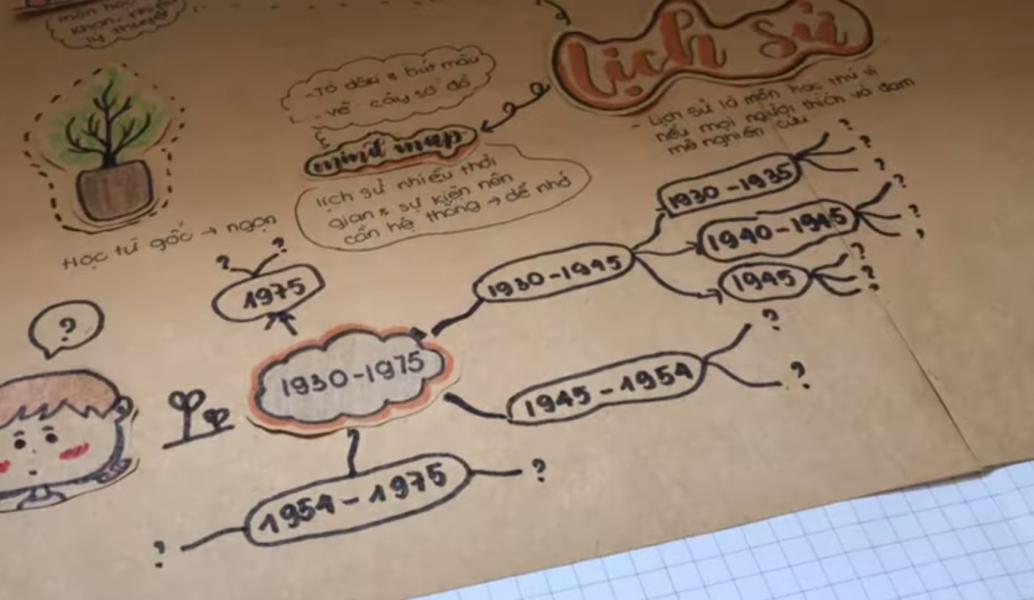 môn học
khan, nhiều
lý thuyết
Lịch sử
- Tô đậm bút màu
- vẽ cây sơ đồ
mind map
lịch sử nhiều thời
gian & sự kiện nên
cần hệ thống → dễ nhớ
- Lịch sử là môn học thú vị
nếu mọi người thích và đam
mê nghiên cứu
Học từ gốc → ngọn
1930-1935
?
?
?
1940-1945
?
?
?
1930-1945
1945
?
?
?
? ?
1975
?
1930-1975
1945-1954
?
?
1954-1975
?
?